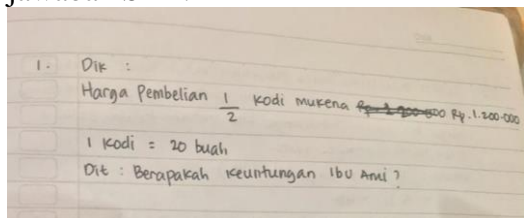 1. Dik :
Harga Pembelian 1/2 kodi mukena Rp. 1.200.000
1 kodi = 20 buah
Dit : Berapakah keuntungan Ibu Ami?